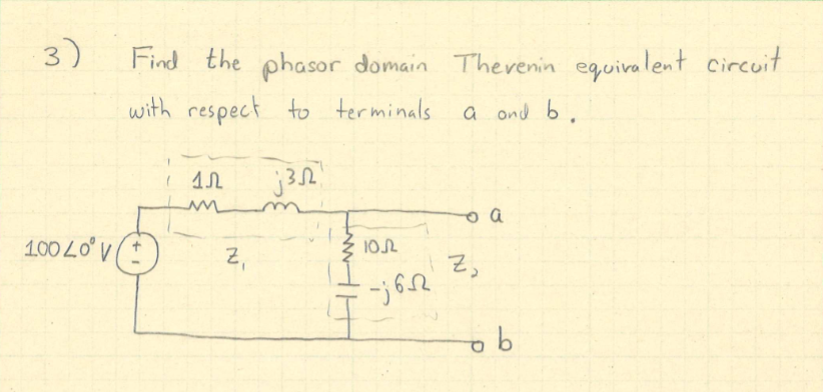 3) Find the phasor domain Thevenin equivalent circuit
with respect to terminals a and b.
1Ω j3Ω
a
100∠0° V + -
Z₁
10Ω
Z₂
-j6Ω
b